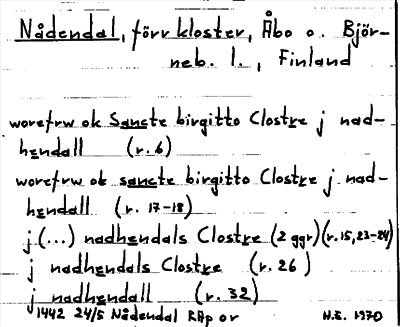 Nådendal, förr kloster, Åbo o. Björ-
neb. l., Finland
worefrw ok Sancte birgitto Clostre j nad-
hendall (r. 6)
worefrw ok sancte birgitto Clostre j nad-
hendall (r. 17-18)
j (...) nadhendals Clostre (2 ggr) (r. 15, 23-24)
j nadhendals Clostre (r. 26)
j nadhendall (r. 32)
1442 24/5 Nådendal RAp or
N.E. 1970